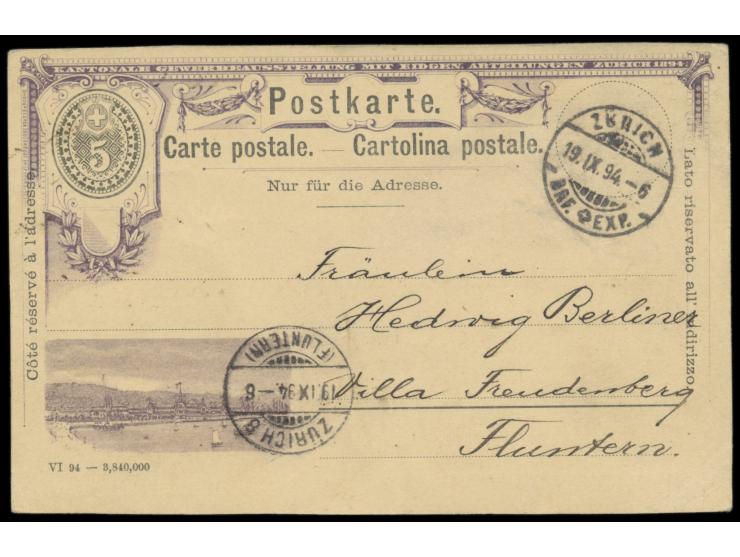 KANTONALE GEWERBEAUSSTELLUNG MIT EIDGEN. ABTEILUNGEN ZÜRICH 1894
5
Postkarte.
Carte postale. — Cartolina postale.
Nur für die Adresse.
Côté réservé à l'adresse.
Lato riservato all' indirizzo.
ZÜRICH
19.IX.94.-6
BRF. EXP.
Fräulein
Hedwig Berliner
Villa Freudenberg
Fluntern.
ZÜRICH 8
19.IX.94-8
(FLUNTERN)
VI 94 — 3,840,000